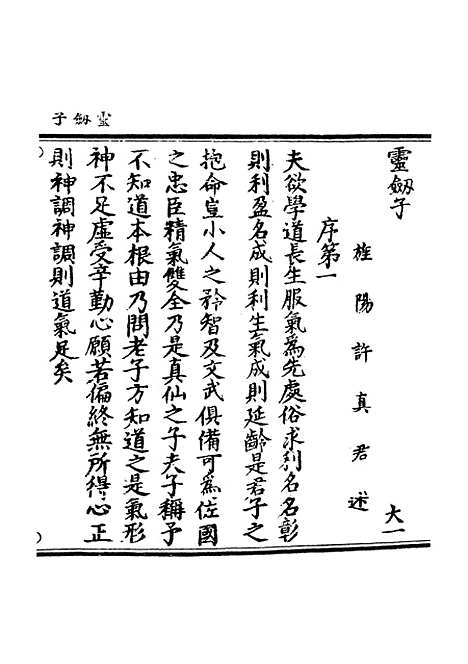 靈劔子
靈劔子 大一
旌陽許真君述
序第一
夫欲學道長生服氣為先處俗求利名名彰
則利盈名成則利生氣成則延齡是君子之
抱命豈小人之矜智及文武俱備可為佐國
之忠臣精氣雙全乃是真仙之子夫子稱予
不知道本根由乃問老子方知道之是氣形
神不足虛受辛勤心願若偏終無所得心正
則神調神調則道氣足矣